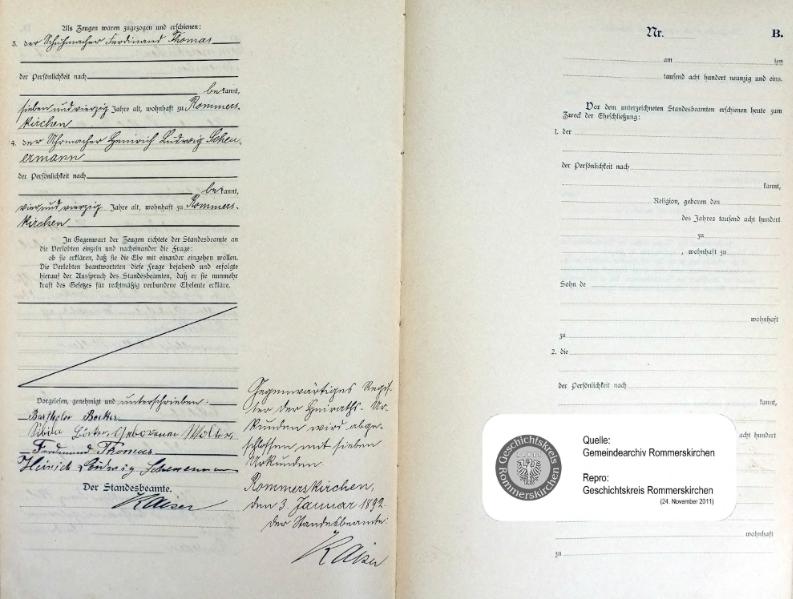 Als Zeugen waren zugezogen und erschienen:
3. der Schuhmacher Ferdinand Thomas
der Persönlichkeit nach
bekannt,
sieben und vierzig Jahre alt, wohnhaft zu Rommers-
kirchen
4. der Uhrmacher Heinrich Ludwig Scheu-
ermann
der Persönlichkeit nach
bekannt,
vier und vierzig Jahre alt, wohnhaft zu Rommers-
kirchen
In Gegenwart der Zeugen richtete der Standesbeamte an
die Verlobten einzeln und nacheinander die Frage:
ob sie erklären, daß sie die Ehe mit einander eingehen wollen.
Die Verlobten beantworteten diese Frage bejahend und erfolgte
hierauf der Ausspruch des Standesbeamten, daß er sie nunmehr
kraft des Gesetzes für rechtmäßig verbundene Eheleute erkläre.
Vorgelesen, genehmigt und unterschrieben:
Becker
geborene
Ferdinand Thomas
Heinrich Ludwig Scheuermann
Der Standesbeamte.
Kaiser
Gegenwärtiges Regis-
ter der Heiraths-Ur-
kunden wird abge-
schlossen mit sieben
Urkunden
Rommerskirchen,
den 3. Januar 1892
Der Standesbeamte:
Kaiser
Nr. B.
am ten
tausend acht hundert neunzig und eins.
Vor dem unterzeichneten Standesbeamten erschienen heute zum
Zweck der Eheschließung:
1. der
der Persönlichkeit nach
kannt,
Religion, geboren den
des Jahres tausend acht hundert
zu
, wohnhaft zu
Sohn de
wohnhaft
zu
2. die
der Persönlichkeit nach
kannt,
acht hundert
Geschichtskreis
Rommerskirchen
Quelle:
Gemeindearchiv Rommerskirchen
Repro:
Geschichtskreis Rommerskirchen
(24. November 2011)
wohnhaft
zu